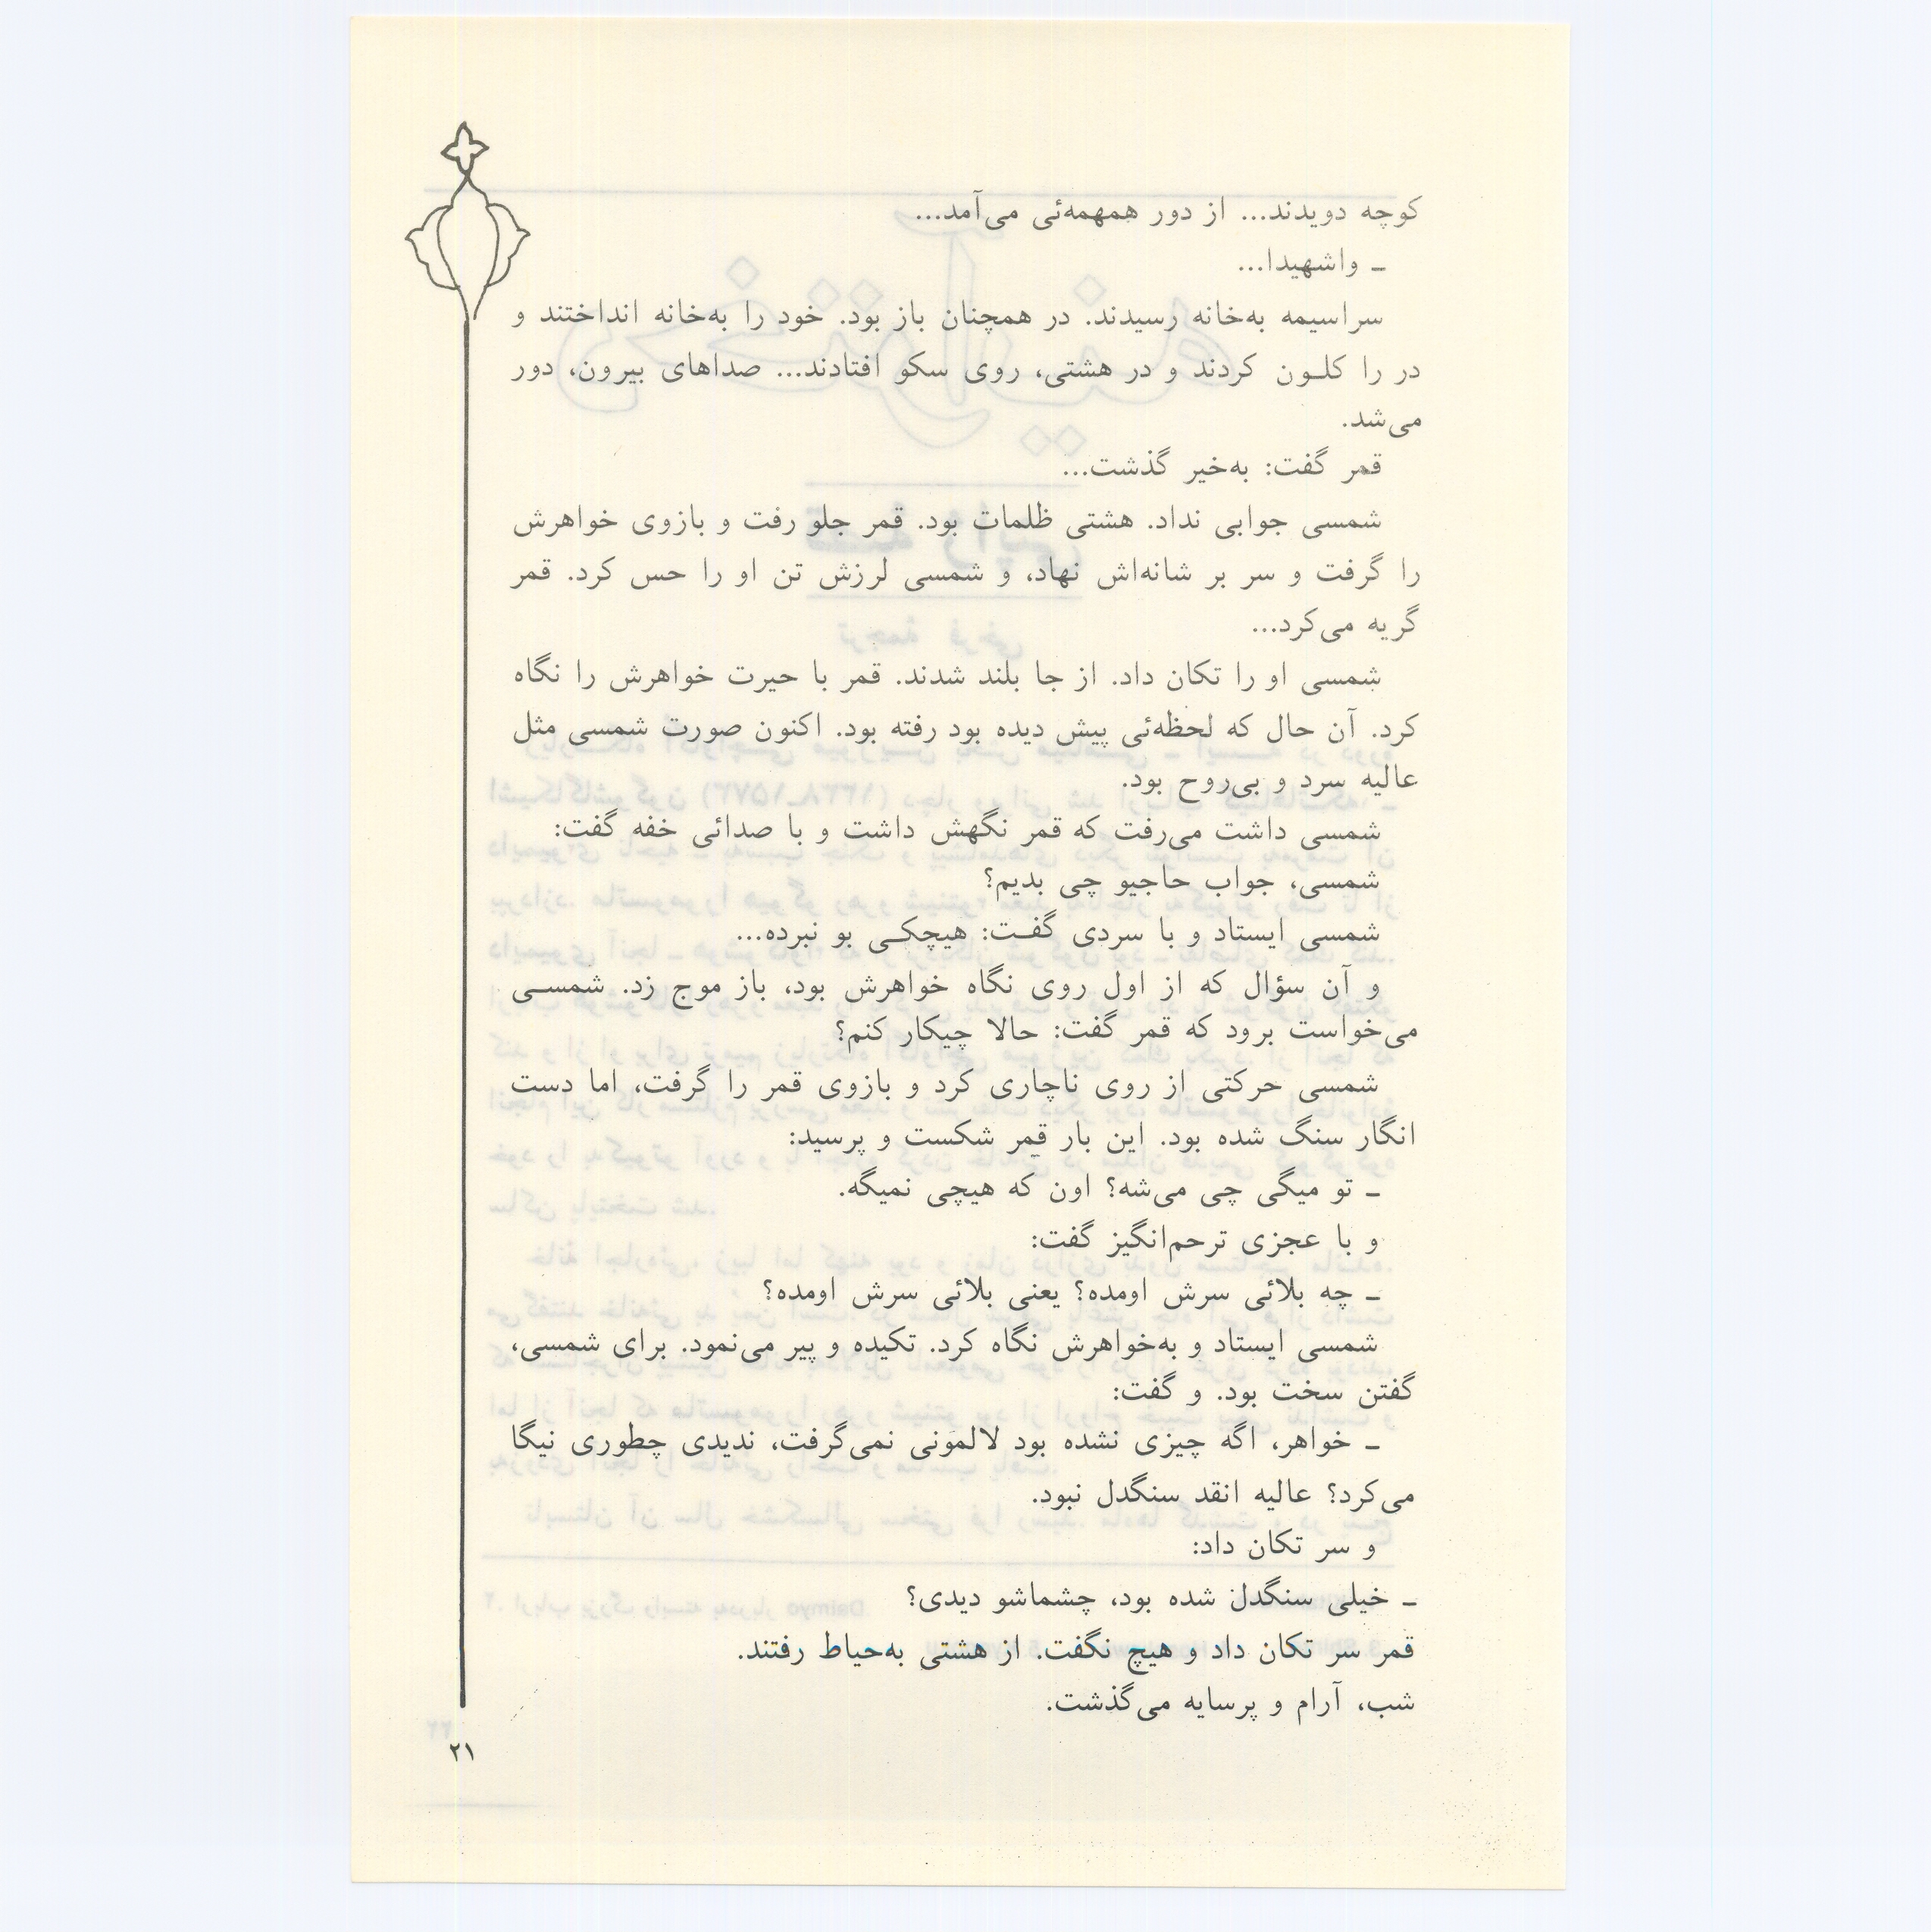 کوچه دویدند... از دور همهمه‌ئی می‌آمد...
ـ واشهیدا...
سراسیمه به‌خانه رسیدند. در همچنان باز بود. خود را به‌خانه انداختند و
در را کلـون کردند و در هشتی، روی سکو افتادند... صداهای بیرون، دور
می‌شد.
قمر گفت: به‌خیر گذشت...
شمسی جوابی نداد. هشتی ظلمات بود. قمر جلو رفت و بازوی خواهرش
را گرفت و سر بر شانه‌اش نهاد، و شمسی لرزش تن او را حس کرد. قمر
گریه می‌کرد...
شمسی او را تکان داد. از جا بلند شدند. قمر با حیرت خواهرش را نگاه
کرد. آن حال که لحظه‌ئی پیش دیده بود رفته بود. اکنون صورت شمسی مثل
عالیه سرد و بی‌روح بود.
شمسی داشت می‌رفت که قمر نگهش داشت و با صدائی خفه گفت:
شمسی، جواب حاجیو چی بدیم؟
شمسی ایستاد و با سردی گفـت: هیچکـی بو نبرده...
و آن سؤال که از اول روی نگاه خواهرش بود، باز موج زد. شمسـی
می‌خواست برود که قمر گفت: حالا چیکار کنم؟
شمسی حرکتی از روی ناچاری کرد و بازوی قمر را گرفت، اما دست
انگار سنگ شده بود. این بار قمر شکست و پرسید:
ـ تو میگی چی می‌شه؟ اون که هیچی نمیگه.
و با عجزی ترحم‌انگیز گفت:
ـ چه بلائی سرش اومده؟ یعنی بلائی سرش اومده؟
شمسی ایستاد و به‌خواهرش نگاه کرد. تکیده و پیر می‌نمود. برای شمسی،
گفتن سخت بود. و گفت:
ـ خواهر، اگه چیزی نشده بود لالمونی نمی‌گرفت، ندیدی چطوری نیگا
می‌کرد؟ عالیه انقد سنگدل نبود.
و سر تکان داد:
ـ خیلی سنگدل شده بود، چشماشو دیدی؟
قمر سر تکان داد و هیچ نگفت. از هشتی به‌حیاط رفتند.
شب، آرام و پرسایه می‌گذشت.
۲۱